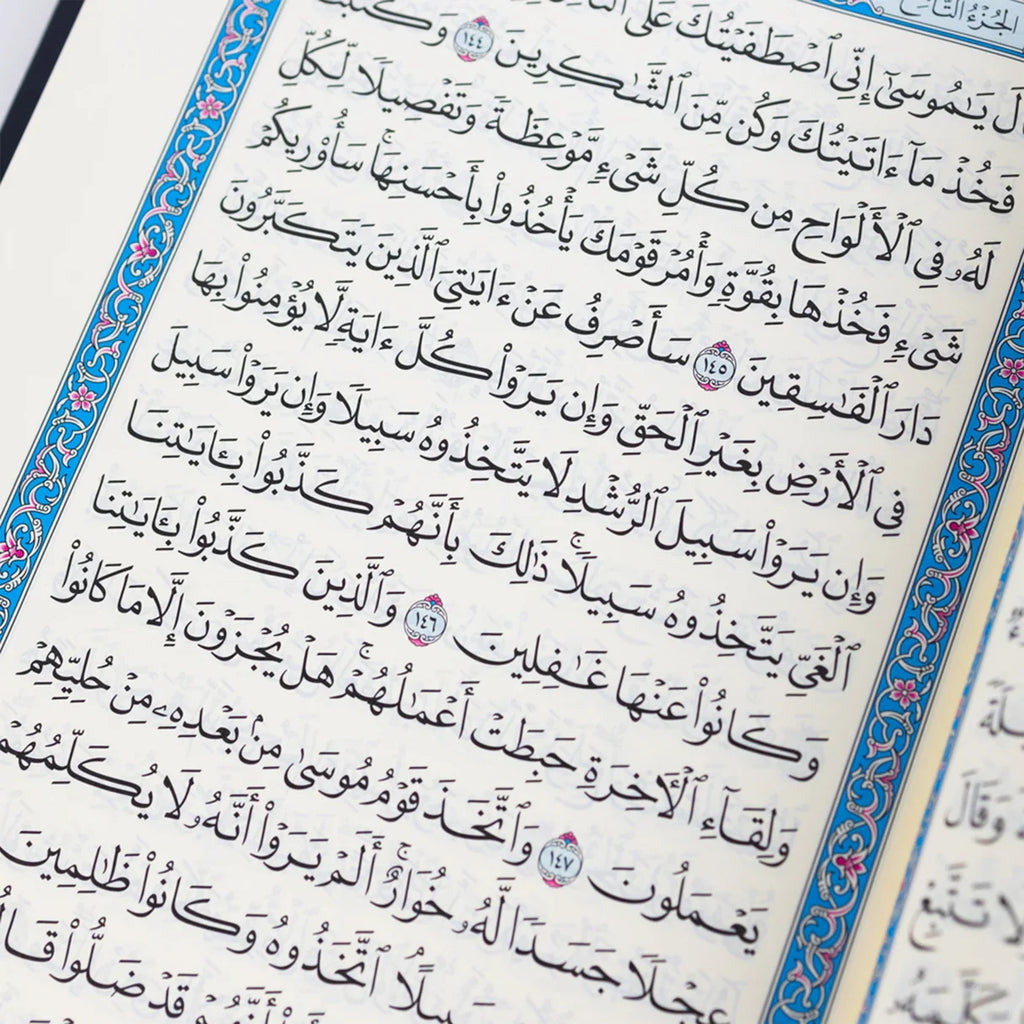 الجزء التاسع
قَالَ يَٰمُوسَىٰٓ إِنِّى ٱصْطَفَيْتُكَ عَلَى ٱلنَّاسِ
فَخُذْ مَآ ءَاتَيْتُكَ وَكُن مِّنَ ٱلشَّٰكِرِينَ ١٤٤ وَكَتَبْنَا
لَهُۥ فِى ٱلْأَلْوَاحِ مِن كُلِّ شَىْءٍ مَّوْعِظَةً وَتَفْصِيلًا لِّكُلِّ
شَىْءٍ فَخُذْهَا بِقُوَّةٍ وَأْمُرْ قَوْمَكَ يَأْخُذُوا۟ بِأَحْسَنِهَا ۚ سَأُو۟رِيكُمْ
دَارَ ٱلْفَٰسِقِينَ ١٤٥ سَأَصْرِفُ عَنْ ءَايَٰتِىَ ٱلَّذِينَ يَتَكَبَّرُونَ
فِى ٱلْأَرْضِ بِغَيْرِ ٱلْحَقِّ وَإِن يَرَوْا۟ كُلَّ ءَايَةٍ لَّا يُؤْمِنُوا۟ بِهَا
وَإِن يَرَوْا۟ سَبِيلَ ٱلرُّشْدِ لَا يَتَّخِذُوهُ سَبِيلًا وَإِن يَرَوْا۟ سَبِيلَ
ٱلْغَىِّ يَتَّخِذُوهُ سَبِيلًا ۚ ذَٰلِكَ بِأَنَّهُمْ كَذَّبُوا۟ بِـَٔايَٰتِنَا
وَكَانُوا۟ عَنْهَا غَٰفِلِينَ ١٤٦ وَٱلَّذِينَ كَذَّبُوا۟ بِـَٔايَٰتِنَا
وَلِقَآءِ ٱلْـَٔاخِرَةِ حَبِطَتْ أَعْمَٰلُهُمْ ۚ هَلْ يُجْزَوْنَ إِلَّا مَا كَانُوا۟
يَعْمَلُونَ ١٤٧ وَٱتَّخَذَ قَوْمُ مُوسَىٰ مِنۢ بَعْدِهِۦ مِنْ حُلِيِّهِمْ
عِجْلًا جَسَدًا لَّهُۥ خُوَارٌ ۚ أَلَمْ يَرَوْا۟ أَنَّهُۥ لَا يُكَلِّمُهُمْ
سَبِيلًا ۘ ٱتَّخَذُوهُ وَكَانُوا۟ ظَٰلِمِينَ
أَنَّهُمْ قَدْ ضَلُّوا۟ قَالُوا۟
وَقَالَ
لَا تَتَّبِعْ